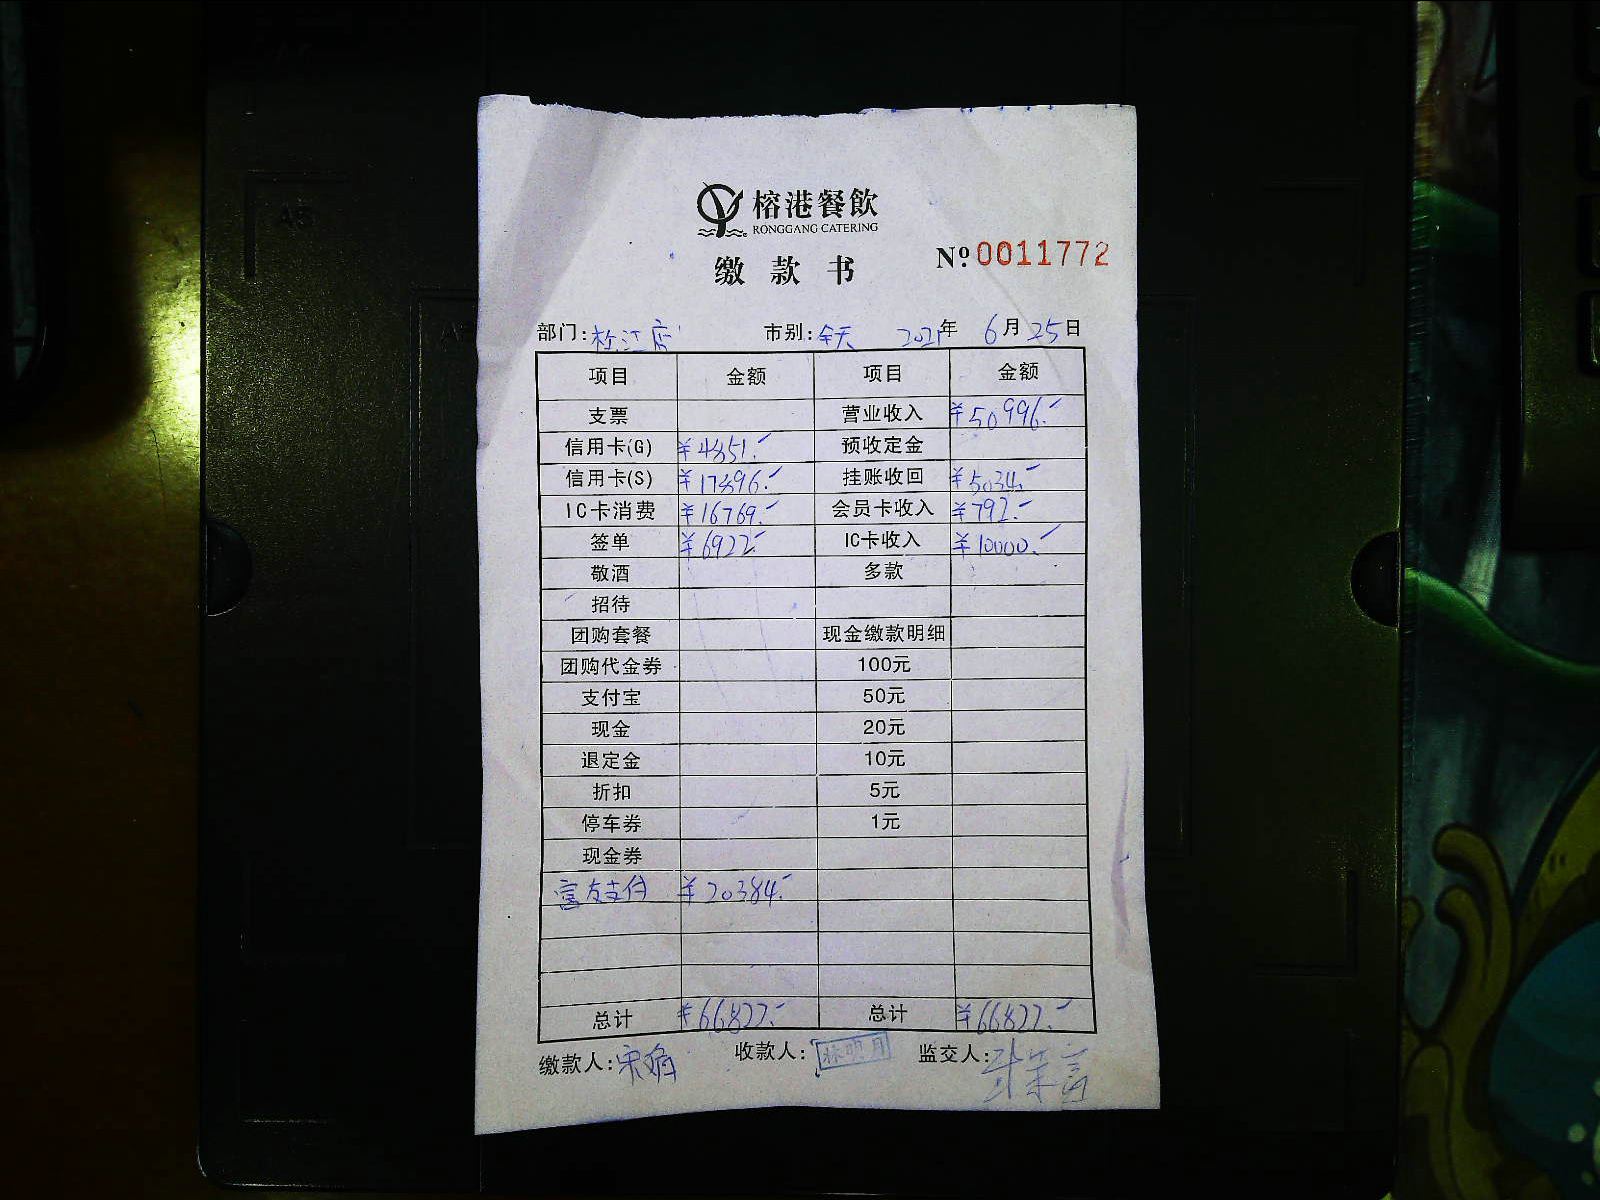 榕港餐飲
RONGGANG CATERING
缴款书
Nº 0011772
部门:松江店 市别:全天 2021年 6月25日
项目 金额 项目 金额
支票 营业收入 ¥50996.-
信用卡(G) ¥4851.- 预收定金
信用卡(S) ¥17896.- 挂账收回 ¥5034.-
IC卡消费 ¥16769.- 会员卡收入 ¥792.-
签单 ¥6922.- IC卡收入 ¥10000.-
敬酒 多款
招待
团购套餐 现金缴款明细
团购代金券 100元
支付宝 50元
现金 20元
退定金 10元
折扣 5元
停车券 1元
现金券
富友支付 ¥20384.-
总计 ¥66822.- 总计 ¥66822.-
缴款人:宋娟 收款人:林明月 监交人: